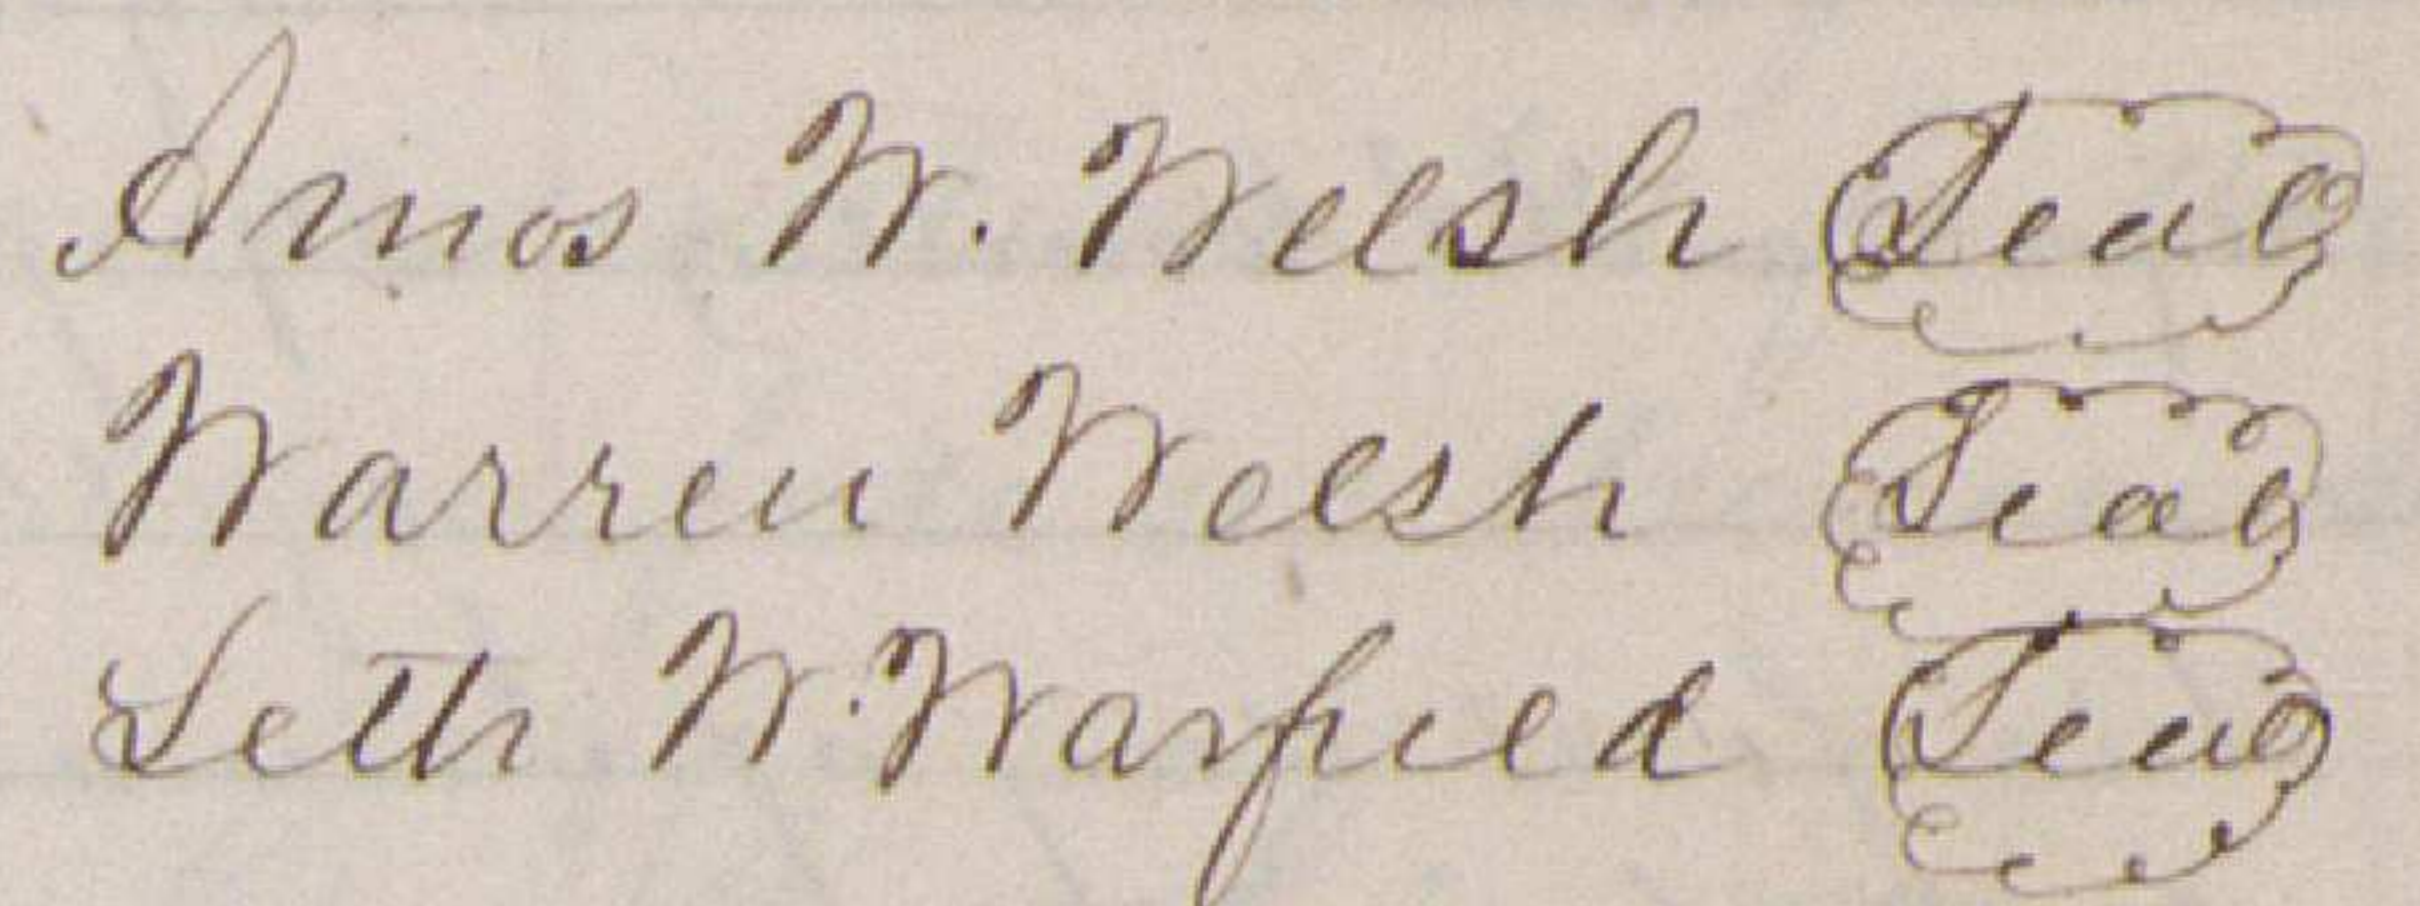 Amos W. Welsh Seal
Warren Welsh Seal
Seth W. Warfield Seal